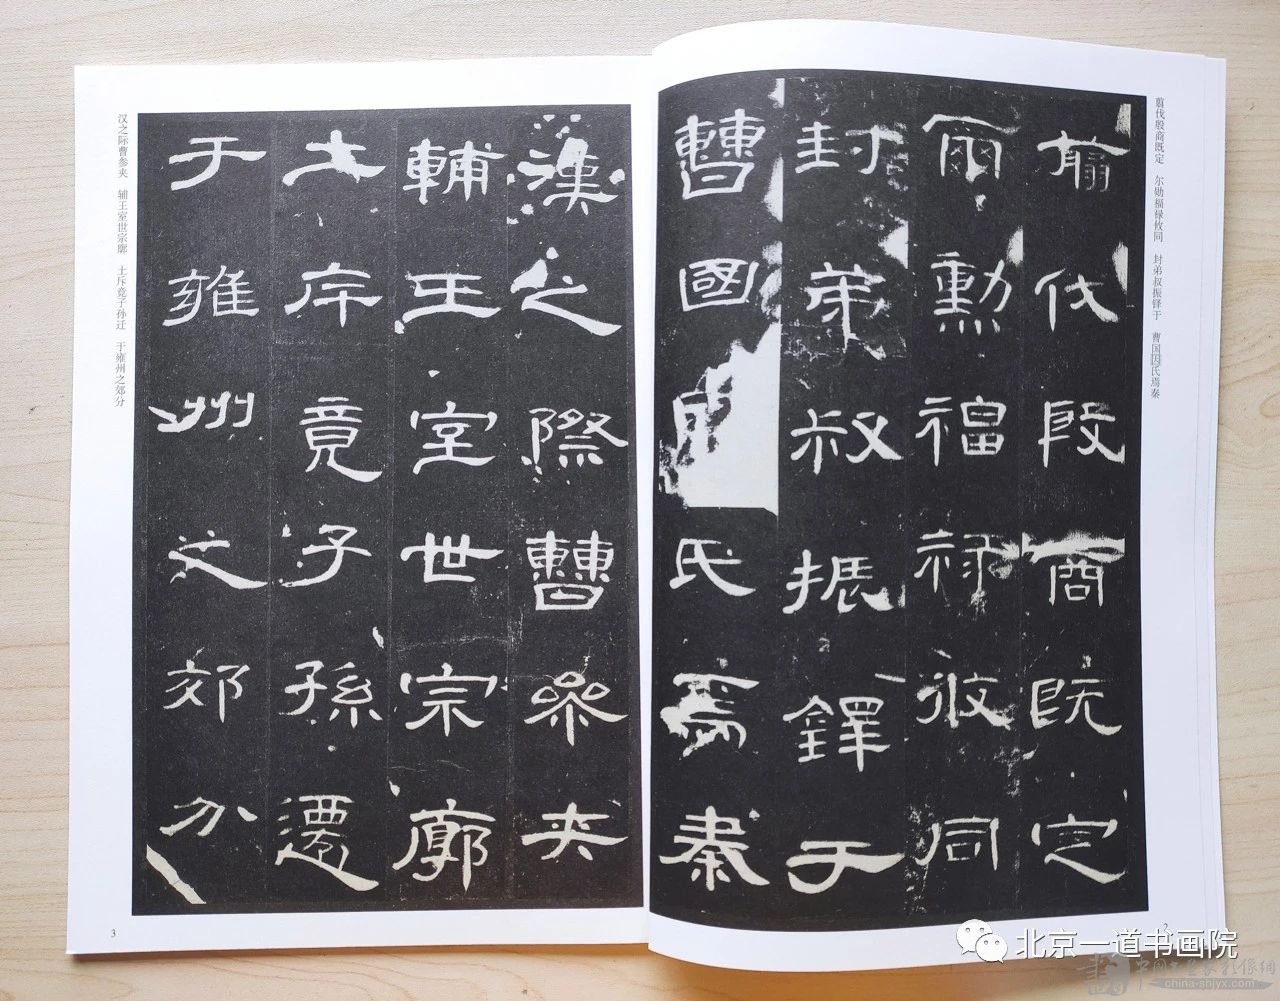 翦伐殷商既定 尔勋福禄攸同 封弟叔振铎于 曹国因氏焉秦
翦伐殷商既定
爾勳福祿攸同
封弟叔振鐸于
曹國因氏焉秦
2
漢之際曹參夾
輔王室世宗廓
土斥竟子孫遷
于雍州之郊分
汉之际曹参夹 辅王室世宗廓 土斥竟子孙迁 于雍州之郊分
3
北京一道书画院
china-shjyx.com